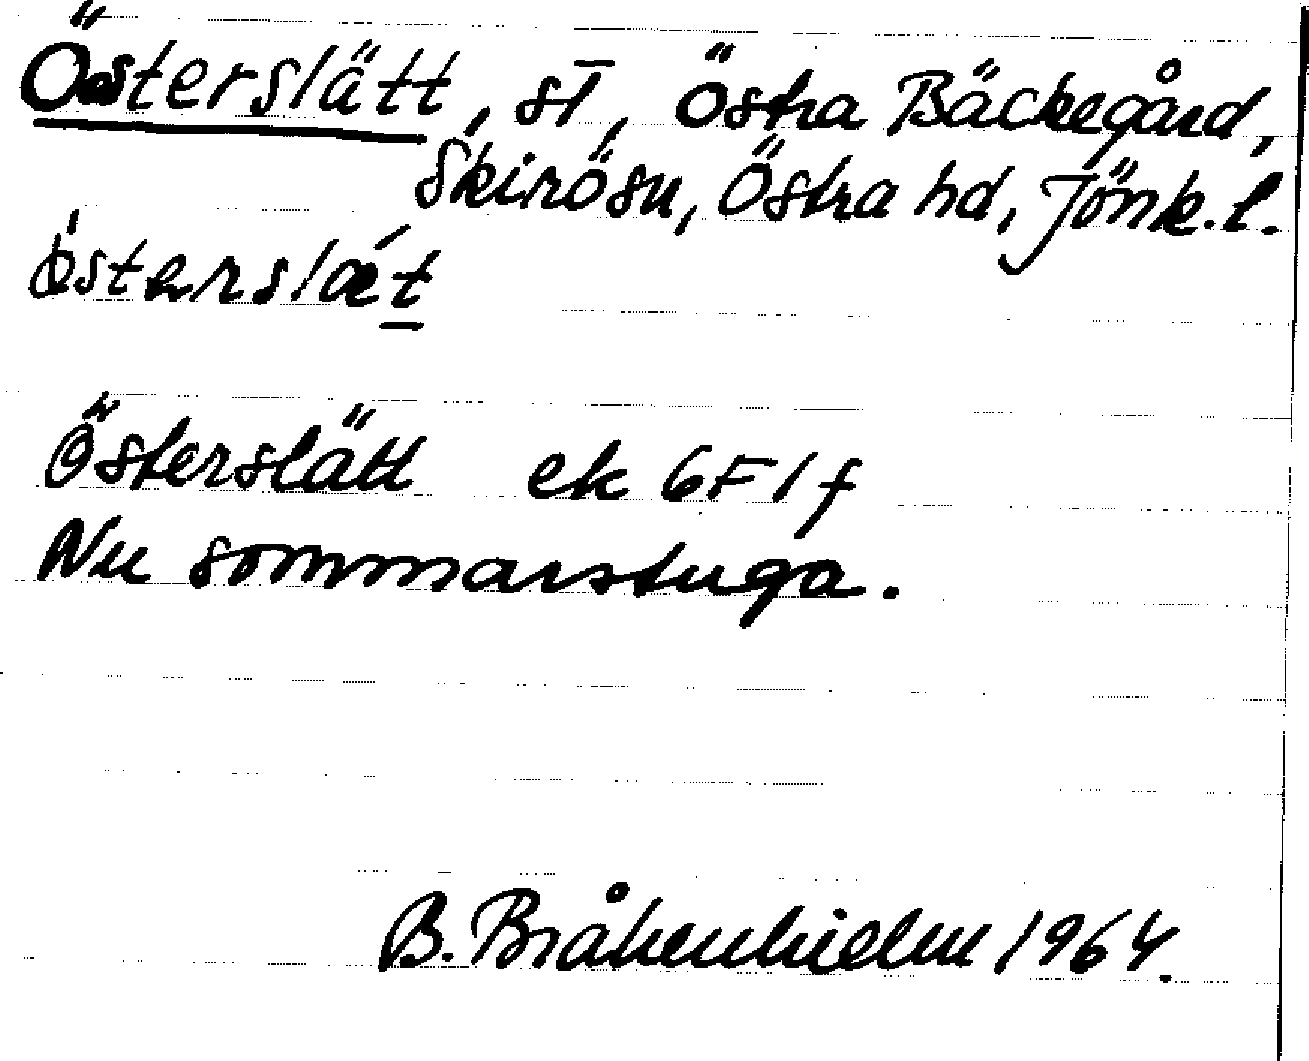 Österslätt, st, Östra Bäckegård,
Skirösn, Östra hd, Jönk. l.
östərslæ´t
Österslätt ek 6F 1 f
Nu sommarstuga.
B. Bråkenhielm 1964.